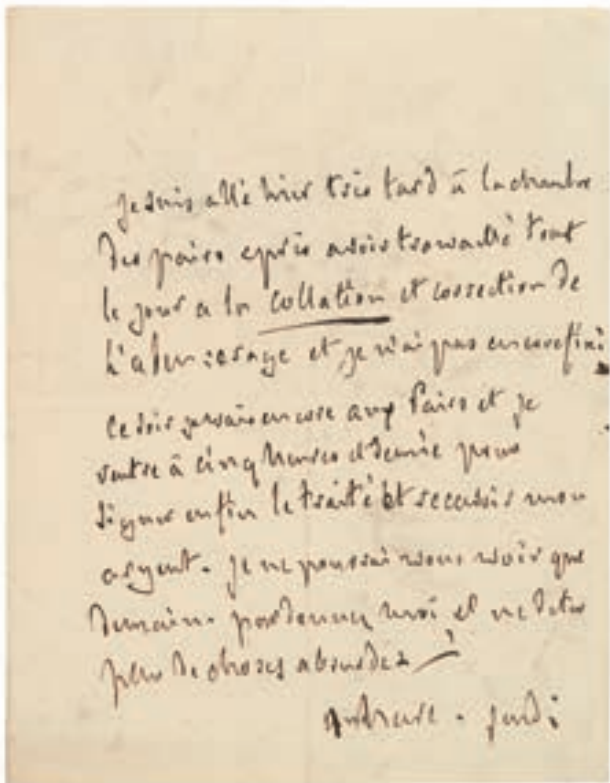 je suis allé hier très tard à la chambre
des pairs après avoir travaillé tout
le jour a la collation et correction de
et je n'ai pas encore fini
ce soir je vais encore aux Pairs et je
rentre à cinq heures et demie pour
signer enfin le traité et recevoir mon
argent. je ne pourrai vous voir que
demain. pardonnez moi et ne dites
plus de choses absurdes
jeudi